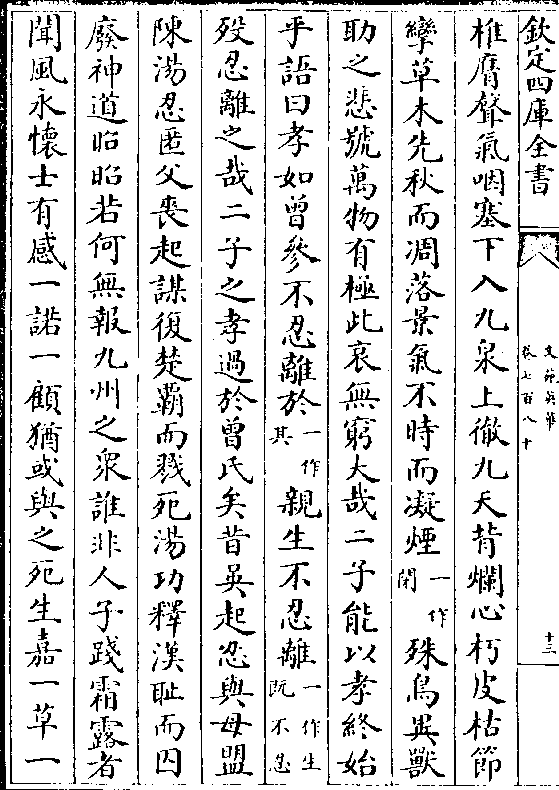 欽定四庫全書
文苑英華
卷七百八十
十三
椎膺聲氣咽塞下入九泉上徹九天背爛心朽皮枯節
攣草木先秋而凋落景氣不時而凝煙一作閉殊鳥異獸
助之悲號萬物有極此哀無窮大哉二子能以孝終始
乎語曰孝如曾參不忍離於一作其親生不忍離一作生既不忍
歿忍離之哉二子之孝過於曾氏矣昔吳起忍與母盟
陳湯忍匿父喪起謀復楚霸而戮死湯功釋漢恥而囚
廢神道昭昭若何無報九州之衆誰非人子踐霜露者
聞風永懷士有感一諾一顧猶或與之死生嘉一草一